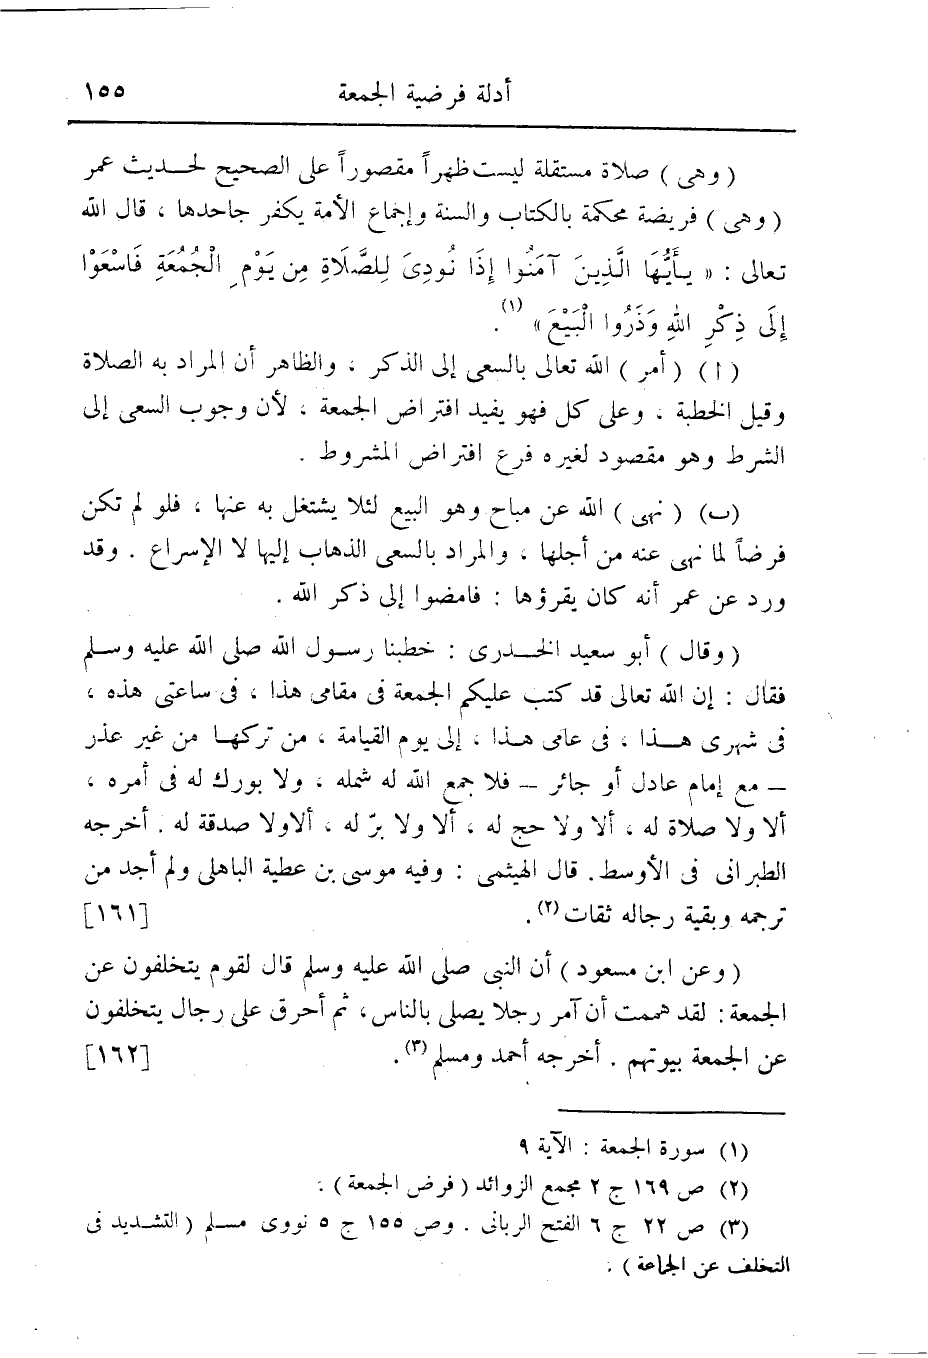 أدلة فرضية الجمعة ١٥٥
( وهى ) صلاة مستقلة ليست ظهراً مقصوراً على الصحيح لحديث عمر
( وهى ) فريضة محكمة بالكتاب والسنة وإجماع الأمة يكفر جاحدها ، قال الله
تعالى : « يـأَيُّهَا الَّذِينَ آمَنُوا إِذَا نُودِىَ لِلصَّلَاةِ مِن يَوْمِ الْجُمُعَةِ فَاسْعَوْا
إِلَى ذِكْرِ اللهِ وَذَرُوا الْبَيْعَ » (١).
( ا ) ( أمر ) الله تعالى بالسعى إلى الذكر ، والظاهر أن المراد به الصلاة
وقيل الخطبة ، وعلى كل فهو يفيد افتراض الجمعة ، لأن وجوب السعى إلى
الشرط وهو مقصود لغيره فرع افتراض المشروط .
(ب) ( نهى ) الله عن مباح وهو البيع لئلا يشتغل به عنها ، فلو لم تكن
فرضاً لما نهى عنه من أجلها ، والمراد بالسعى الذهاب إليها لا الإسراع . وقد
ورد عن عمر أنه كان يقرؤها : فامضوا إلى ذكر الله .
( وقال ) أبو سعيد الخدرى : خطبنا رسول الله صلى الله عليه وسلم
فقال : إن الله تعالى قد كتب عليكم الجمعة فى مقامى هذا ، فى ساعتى هذه ،
فى شهرى هذا ، فى عامى هذا ، إلى يوم القيامة ، من تركها من غير عذر
– مع إمام عادل أو جائر – فلا جمع الله له شمله ، ولا بورك له فى أمره ،
ألا ولا صلاة له ، ألا ولا حج له ، ألا ولا برّ له ، ألاولا صدقة له . أخرجه
الطبرانى فى الأوسط. قال الهيثمى : وفيه موسى بن عطية الباهلى ولم أجد من
ترجمه وبقية رجاله ثقات (٢). [١٦١]
( وعن ابن مسعود ) أن النبى صلى الله عليه وسلم قال لقوم يتخلفون عن
الجمعة : لقد هممت أن آمر رجلا يصلى بالناس، ثم أحرق على رجال يتخلفون
عن الجمعة بيوتهم . أخرجه أحمد ومسلم (٣). [١٦٢]
(١) سورة الجمعة : الآية ٩
(٢) ص ١٦٩ ج ٢ مجمع الزوائد ( فرض الجمعة ) .
(٣) ص ٢٢ ج ٦ الفتح الربانى . وص ١٥٥ ج ٥ نووى مسلم ( التشديد فى
التخلف عن الجماعة ) .